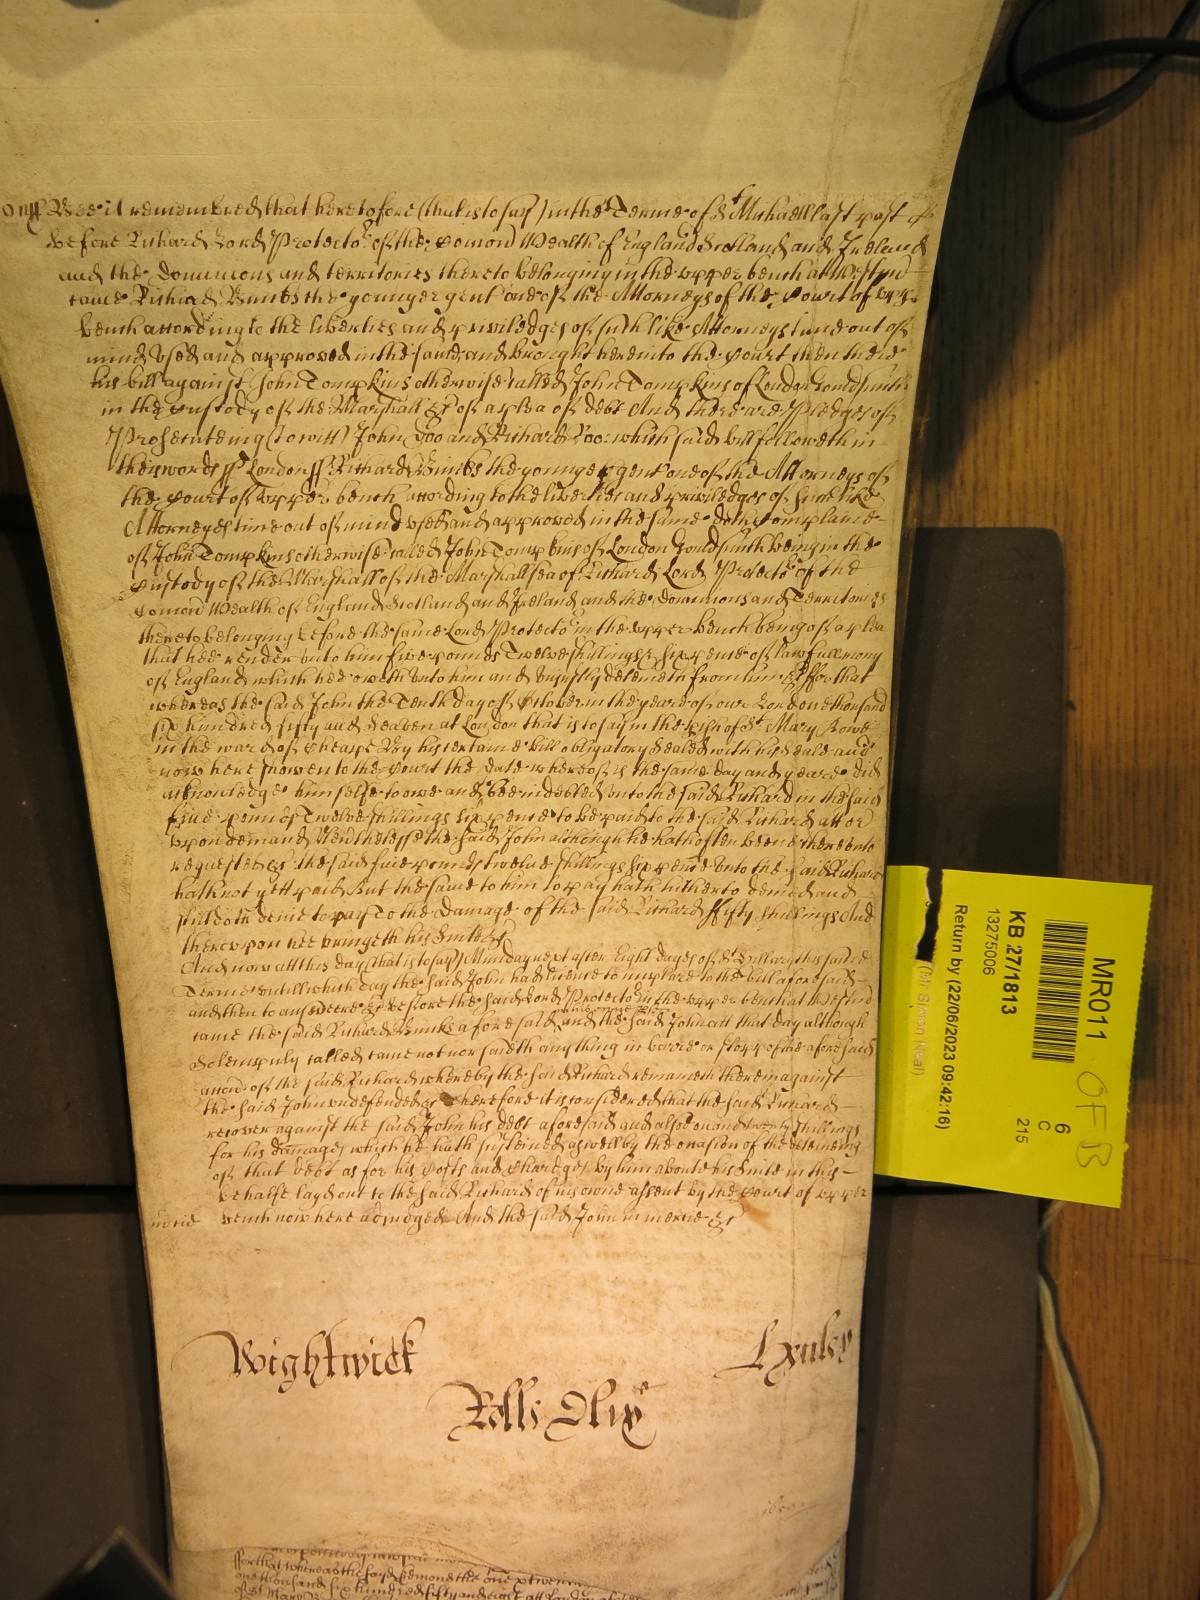 Bee it remembred that heretofore (that is to say) in the Terme of St Michaell last past
before Richard Lord Protector of the Comon Wealth of England Scotland and Ireland
and the Dominions and territories thereto belonging in the upper bench at Westmr
came Richard the younger gent one of the Attorneys of the Court of upper
bench according to the liberties and priviledges of such like Attorneys time out of
mind used and approved in the same and brought here into the Court then there
his bill against John Tompkins otherwise called John Tompkins of London Gouldsmith
in the Custody of the Marshall &c of a plea of debt And there are Pledges of
Prosecuteing (to witt) John Doo and Richard Roo which said bill followeth in
theis words ss London ss Richard the younger gent one of the Attorneys of
the Court of upper bench according to the liberties and priviledges of such like
Attorneyes time out of mind used and approved in the same doth Complaine
of John Tompkins otherwise called John Tompkins of London Gouldsmith being in the
Custody of the Marshall of the Marshallsea of Richard Lord Protector of the
Comon Wealth of England Scotland and Ireland and the Dominions and Territories
thereto belonging before the same Lord Protector in the upper bench being of a plea
that hee render unto him five pounds Twelve shillings & six pence of lawfull mony
of England which hee oweth unto him and uniustly deteineth from him &c ffor that
whereas the said John the Tenth day of October in the yeare of our Lord one thousand
six hundred fifty and seaven at London that is to say in the pish of St Mary Bowe
in the ward of Cheape By his certaine bill obligatory sealed with his seale and
now here shewen to the Court the date whereof is the same day and yeare did
acknowledge himselfe to owe and bee indebted unto the said Richard in the said
five pounds Twelve shillings six pence to be paid to the said Richard att or
upon demand Neverthelesse the said John although he hath often beene thereunto
requested &c the said five pounds twelve shillings six pence unto the said Richard
hath not yett paid But the same to him to pay hath hitherto denied and
still doth denie to pay To the Damage of the said Richard ffifty shillings And
thereupon hee bringeth his suite &c
And now att this day (that is to say) Munday next after Eight dayes of St Hillary this same
Terme untill which day the said John had licence to imparle to the bill aforesaid
and then to answere &c before the said Lord Protector in the upper bench at Westmr
came the said Richard aforesaid and the said John att that day although
Solempnly called came not nor saith anything in barre or stopp of the aforesaid
accon of the said Richard whereby the said Richard remaineth therein against
the said John undefended &c Therefore it is considered that the said Richard
recover against the said John his debt aforesaid and also twenty shillings
for his damages which he hath susteined aswell by the occasion of the deteineing
of that debt as for his Costs and Chardges by him aboute his suite in this
behalfe layd out to the said Richard of his owne assent by the Court of upper
bench now here adiudged And the said John in mercie &c
Wightwick
Rolls
fforthat whereas the sayd
one thousand six hundred fifty and eight att London
MR011
KB 27/1813
13275006
6
C
215
Return by (22/06/2023 09:42:16)
(Mr Simon Neal)
OFB